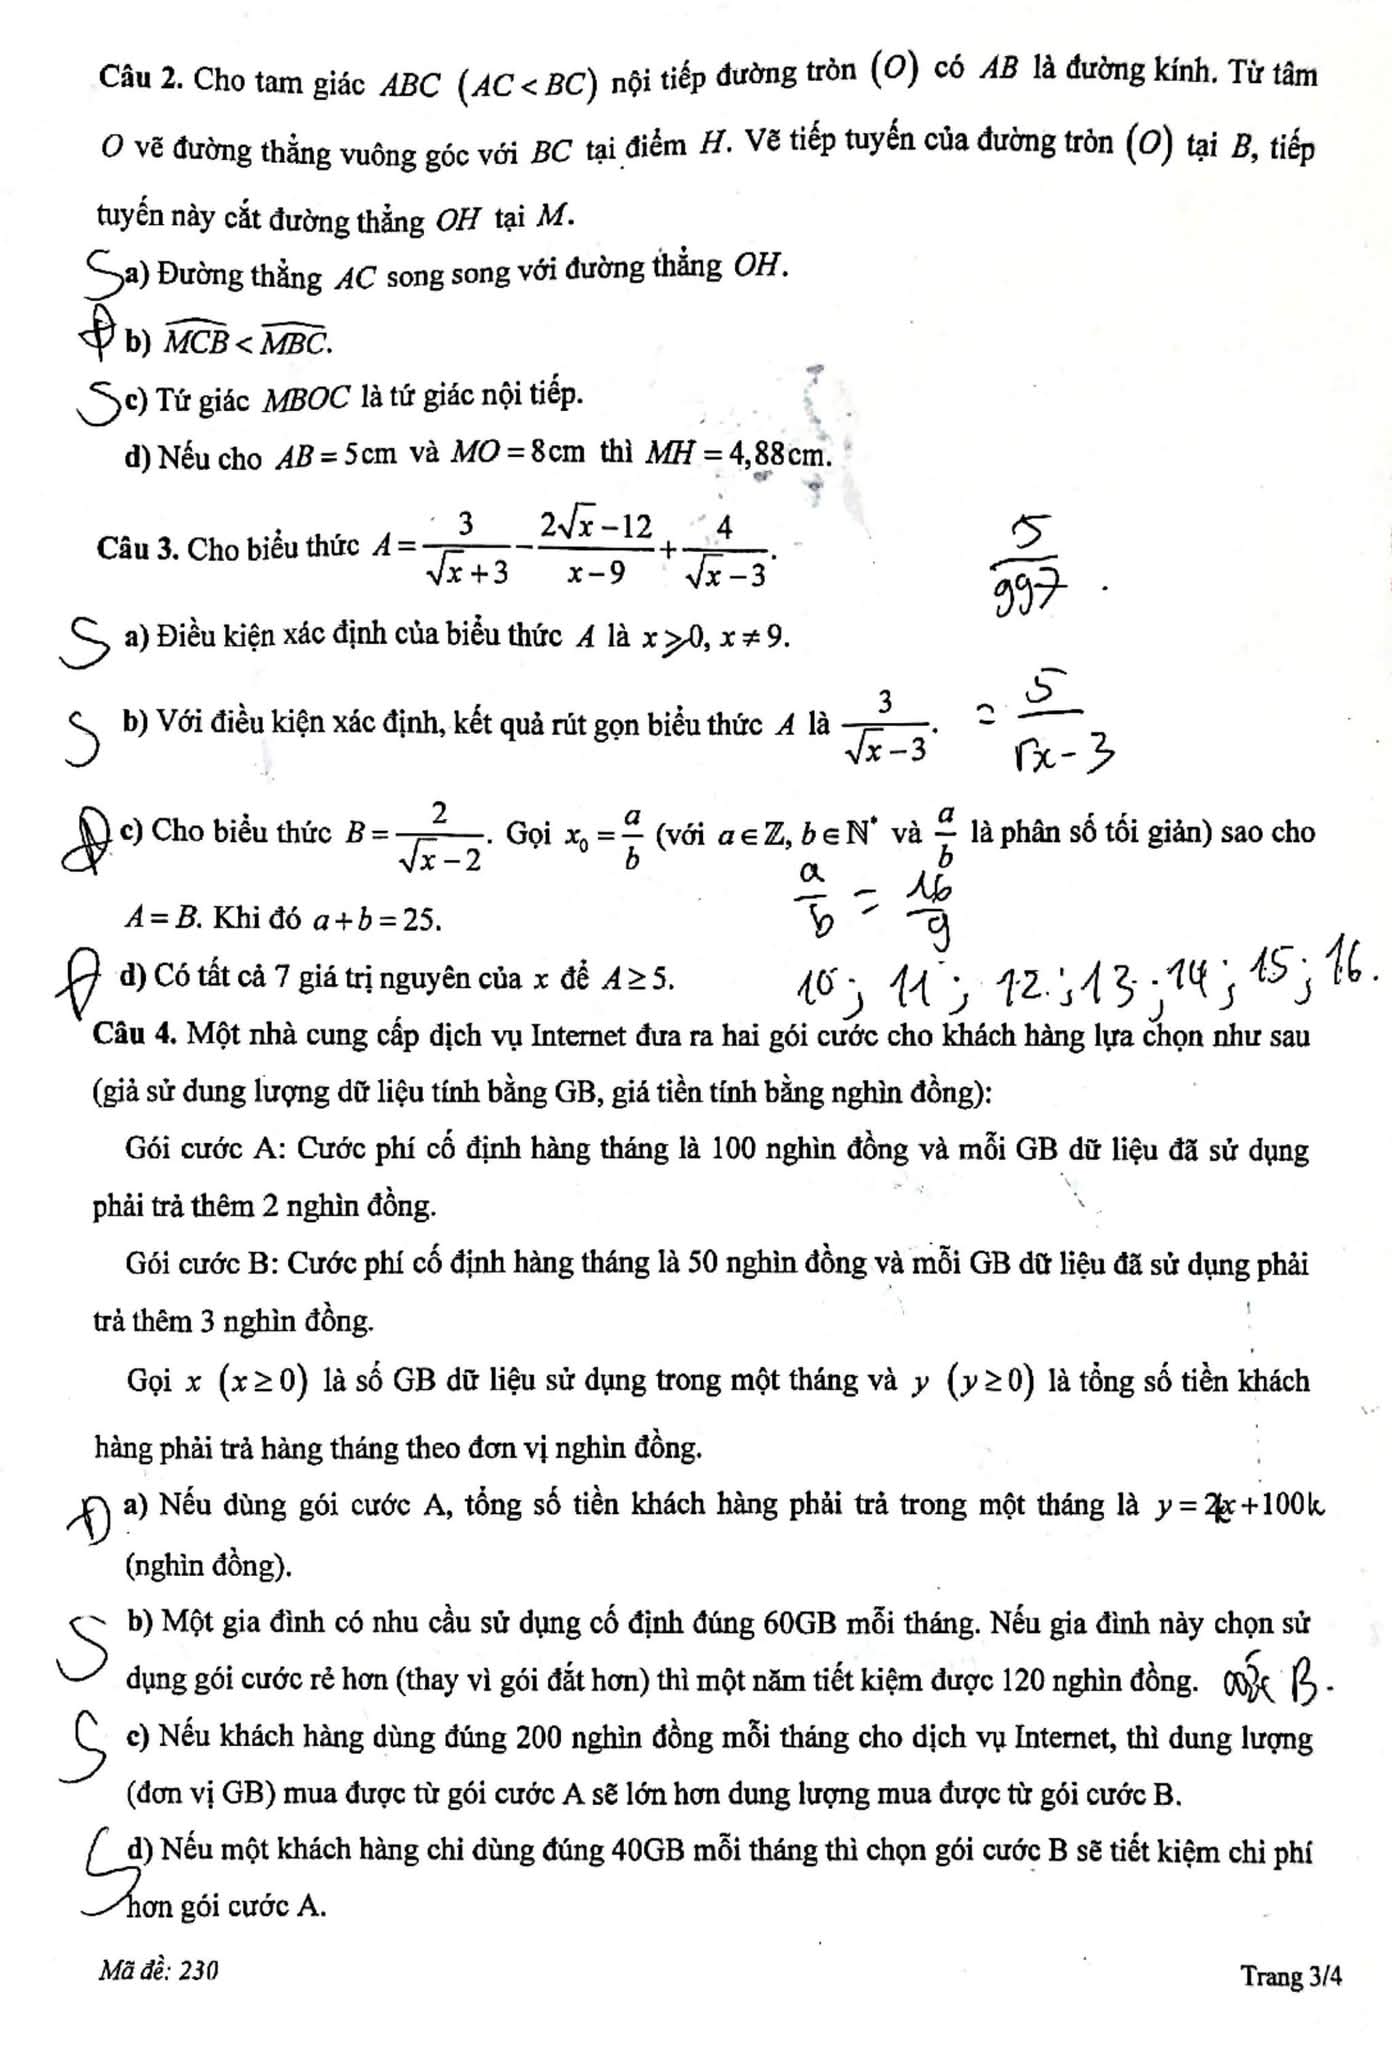 Câu 2. Cho tam giác ABC (AC < BC) nội tiếp đường tròn (O) có AB là đường kính. Từ tâm
O vẽ đường thẳng vuông góc với BC tại điểm H. Vẽ tiếp tuyến của đường tròn (O) tại B, tiếp
tuyến này cắt đường thẳng OH tại M.
S a) Đường thẳng AC song song với đường thẳng OH.
Đ b) \widehat{MCB} < \widehat{MBC}.
S c) Tứ giác MBOC là tứ giác nội tiếp.
d) Nếu cho AB = 5cm và MO = 8cm thì MH = 4,88cm.
Câu 3. Cho biểu thức A = \frac{3}{\sqrt{x}+3} - \frac{2\sqrt{x}-12}{x-9} + \frac{4}{\sqrt{x}-3}.
\frac{5}{997}.
S a) Điều kiện xác định của biểu thức A là x ⩾ 0, x ≠ 9.
S b) Với điều kiện xác định, kết quả rút gọn biểu thức A là \frac{3}{\sqrt{x}-3}. = \frac{5}{\sqrt{x}-3}
Đ c) Cho biểu thức B = \frac{2}{\sqrt{x}-2}. Gọi x₀ = \frac{a}{b} (với a ∈ ℤ, b ∈ ℕ* và \frac{a}{b} là phân số tối giản) sao cho
A = B. Khi đó a + b = 25. \frac{a}{b} = \frac{16}{9}
Đ d) Có tất cả 7 giá trị nguyên của x để A ≥ 5. 10; 11; 12; 13; 14; 15; 16.
Câu 4. Một nhà cung cấp dịch vụ Internet đưa ra hai gói cước cho khách hàng lựa chọn như sau
(giả sử dung lượng dữ liệu tính bằng GB, giá tiền tính bằng nghìn đồng):
Gói cước A: Cước phí cố định hàng tháng là 100 nghìn đồng và mỗi GB dữ liệu đã sử dụng
phải trả thêm 2 nghìn đồng.
Gói cước B: Cước phí cố định hàng tháng là 50 nghìn đồng và mỗi GB dữ liệu đã sử dụng phải
trả thêm 3 nghìn đồng.
Gọi x (x ≥ 0) là số GB dữ liệu sử dụng trong một tháng và y (y ≥ 0) là tổng số tiền khách
hàng phải trả hàng tháng theo đơn vị nghìn đồng.
Đ a) Nếu dùng gói cước A, tổng số tiền khách hàng phải trả trong một tháng là y = 2x + 100k
(nghìn đồng).
S b) Một gia đình có nhu cầu sử dụng cố định đúng 60GB mỗi tháng. Nếu gia đình này chọn sử
dụng gói cước rẻ hơn (thay vì gói đắt hơn) thì một năm tiết kiệm được 120 nghìn đồng. B.
S c) Nếu khách hàng dùng đúng 200 nghìn đồng mỗi tháng cho dịch vụ Internet, thì dung lượng
(đơn vị GB) mua được từ gói cước A sẽ lớn hơn dung lượng mua được từ gói cước B.
S d) Nếu một khách hàng chỉ dùng đúng 40GB mỗi tháng thì chọn gói cước B sẽ tiết kiệm chi phí
hơn gói cước A.
Mã đề: 230
Trang 3/4